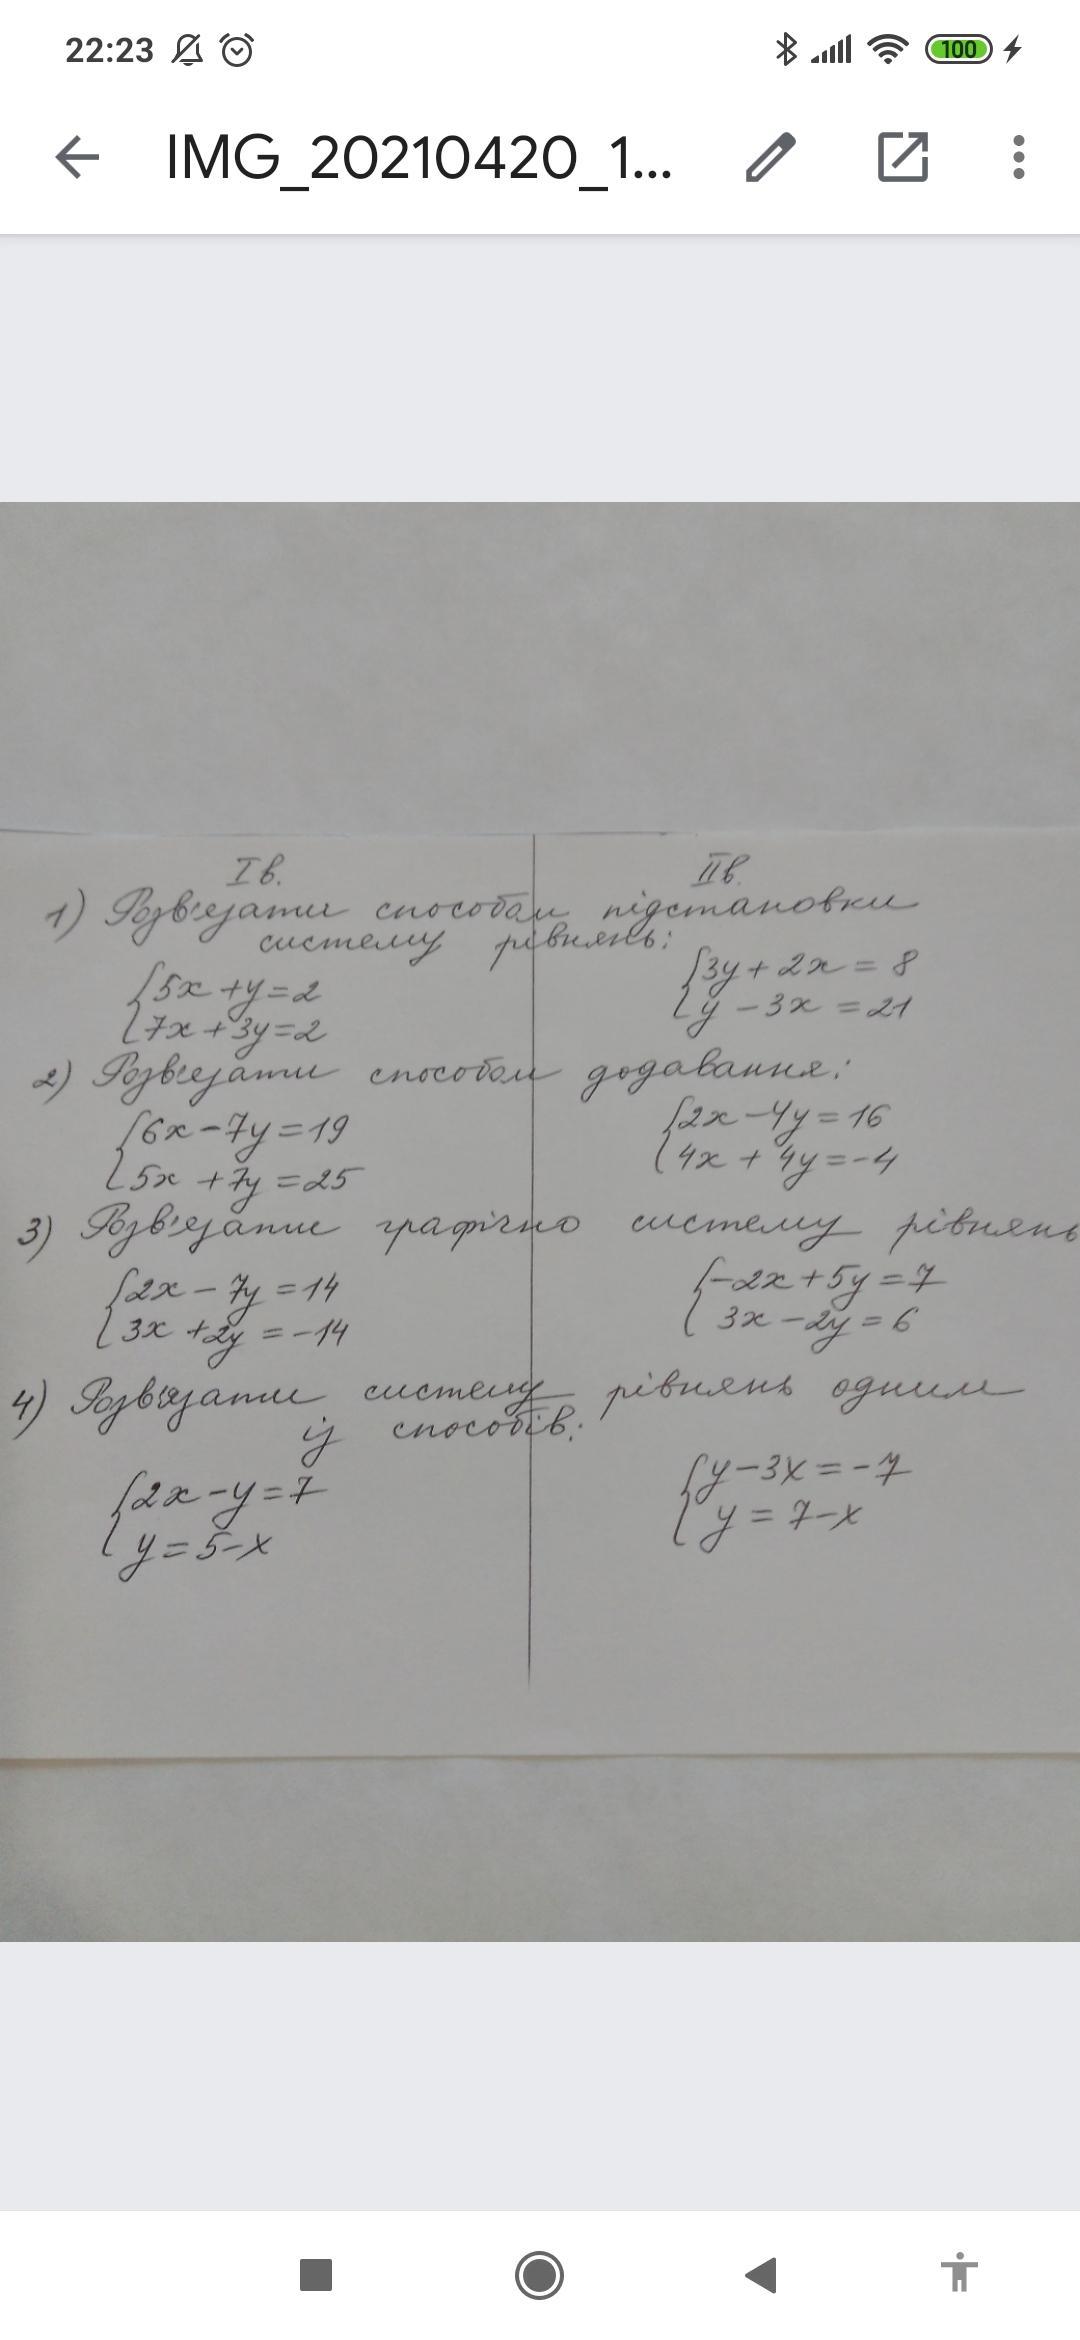 22:23
100
IMG_20210420_1...
I в.
II в.
1) Розв'язати способом підстановки
систему рівнянь:
5x + y = 2
7x + 3y = 2
3y + 2x = 8
y - 3x = 21
2) Розв'язати способом додавання:
6x - 7y = 19
5x + 7y = 25
2x - 4y = 16
4x + 4y = -4
3) Розв'язати графічно систему рівнянь
2x - 7y = 14
3x + 2y = -14
-2x + 5y = 7
3x - 2y = 6
4) Розв'язати систему рівнянь одним
із способів:
2x - y = 7
y = 5 - x
y - 3x = -7
y = 7 - x